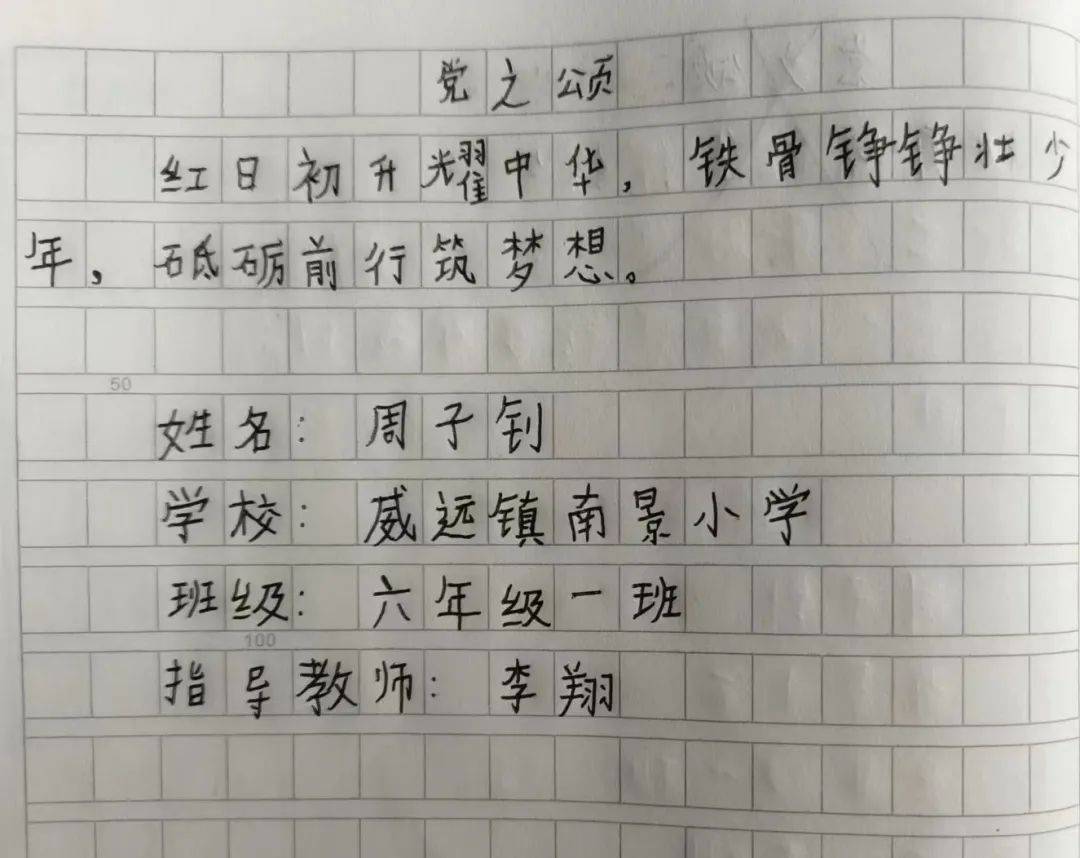 党之颂
红日初升耀中华，铁骨铮铮壮少
年，砥砺前行筑梦想。
50
姓名：周子钊
学校：威远镇南景小学
班级：六年级一班
100
指导教师：李翔